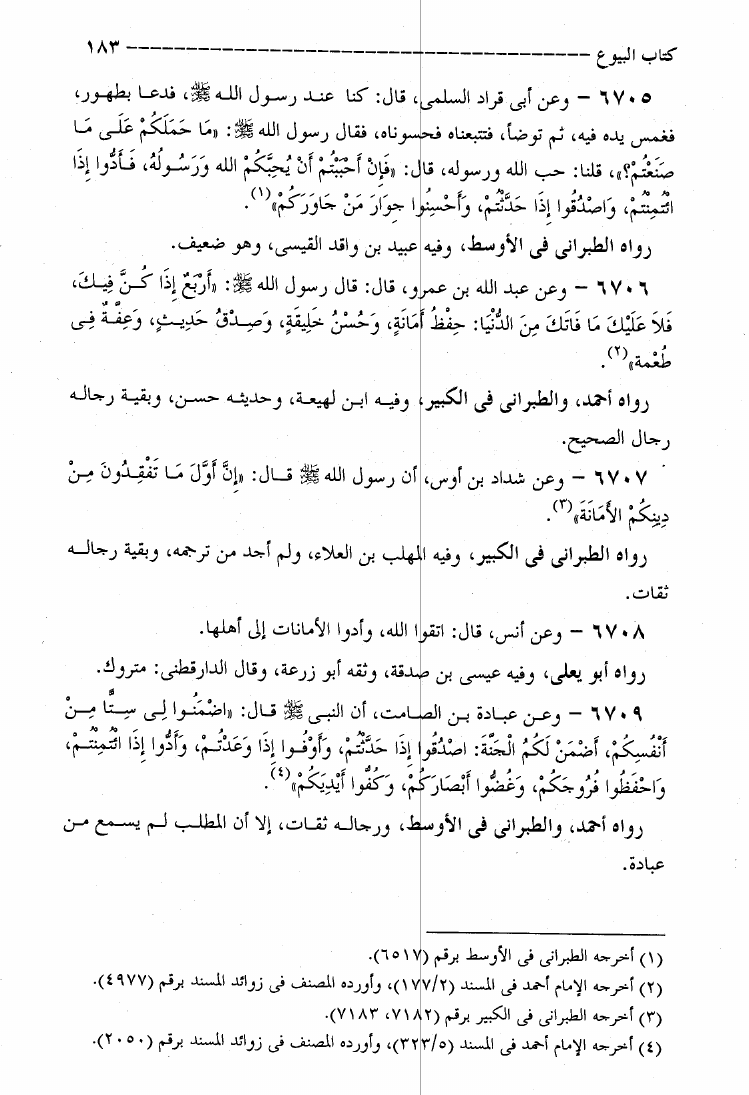 كتاب البيوع ---------------------------------------- ١٨٣
٦٧٠٥ – وعن أبى قراد السلمى، قال: كنا عند رسول الله ﷺ، فدعا بطهور،
فغمس يده فيه، ثم توضأ، فتتبعناه فحسوناه، فقال رسول الله ﷺ: «مَا حَمَلَكُمْ عَلَى مَا
صَنَعْتُمْ؟»، قلنا: حب الله ورسوله، قال: «فَإِنْ أَحْبَبْتُمْ أَنْ يُحِبَّكُمْ الله وَرَسُولُهُ، فَأَدُّوا إِذَا
ائْتُمِنْتُمْ، وَاصْدُقُوا إِذَا حَدَّثْتُمْ، وَأَحْسِنُوا جِوَارَ مَنْ جَاوَرَكُمْ»(١).
رواه الطبرانى فى الأوسط، وفيه عبيد بن واقد القيسى، وهو ضعيف.
٦٧٠٦ – وعن عبد الله بن عمرو، قال: قال رسول الله ﷺ: «أَرْبَعٌ إِذَا كُنَّ فِيكَ،
فَلاَ عَلَيْكَ مَا فَاتَكَ مِنَ الدُّنْيَا: حِفْظُ أَمَانَةٍ، وَحُسْنُ خَلِيقَةٍ، وَصِدْقُ حَدِيثٍ، وَعِفَّةٌ فِى
طُعْمة»(٢).
رواه أحمد، والطبرانى فى الكبير، وفيه ابن لهيعة، وحديثه حسن، وبقية رجاله
رجال الصحيح.
٦٧٠٧ – وعن شداد بن أوس، أن رسول الله ﷺ قال: «إِنَّ أَوَّلَ مَا تَفْقِدُونَ مِنْ
دِينِكُمْ الأَمَانَةَ»(٣).
رواه الطبرانى فى الكبير، وفيه المهلب بن العلاء، ولم أجد من ترجمه، وبقية رجاله
ثقات.
٦٧٠٨ – وعن أنس، قال: اتقوا الله، وأدوا الأمانات إلى أهلها.
رواه أبو يعلى، وفيه عيسى بن صدقة، وثقه أبو زرعة، وقال الدارقطنى: متروك.
٦٧٠٩ – وعن عبادة بن الصامت، أن النبى ﷺ قال: «اضْمَنُوا لِى سِتًّا مِنْ
أَنْفُسِكُمْ، أَضْمَنْ لَكُمُ الْجَنَّةَ: اصْدُقُوا إِذَا حَدَّثْتُمْ، وَأَوْفُوا إِذَا وَعَدْتُمْ، وَأَدُّوا إِذَا ائْتُمِنْتُمْ،
وَاحْفَظُوا فُرُوجَكُمْ، وَغُضُّوا أَبْصَارَكُمْ، وَكُفُّوا أَيْدِيَكُمْ»(٤).
رواه أحمد، والطبرانى فى الأوسط، ورجاله ثقات، إلا أن المطلب لم يسمع من
عبادة.
(١) أخرجه الطبرانى فى الأوسط برقم (٦٥١٧).
(٢) أخرجه الإمام أحمد فى المسند (١٧٧/٢)، وأورده المصنف فى زوائد المسند برقم (٤٩٧٧).
(٣) أخرجه الطبرانى فى الكبير برقم (٧١٨٢، ٧١٨٣).
(٤) أخرجه الإمام أحمد فى المسند (٣٢٣/٥)، وأورده المصنف فى زوائد المسند برقم (٢٠٥٠).